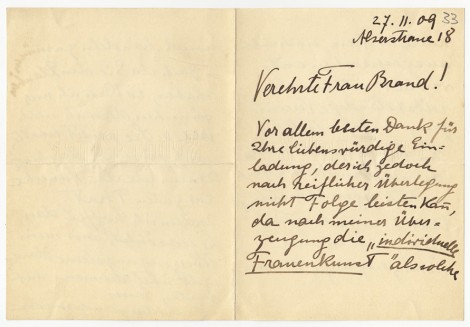 27. II. 09 33
Alserstrasse 18
Verehrte Frau Brand!
Vor allem besten Dank für
Ihre liebenswürdige Ein-
ladung, der ich jedoch
nach reiflicher Überlegung
nicht Folge leisten kan,
da nach meiner Über-
zeugung die „individuelle
Frauenkunst" als solche